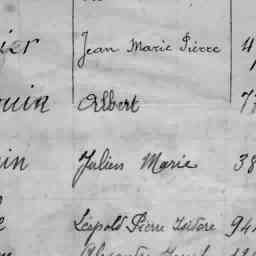 ier Jean Marie Pierre 4
ouin Albert 77
in Julien Marie 38
Léopold Pierre Isidore 94